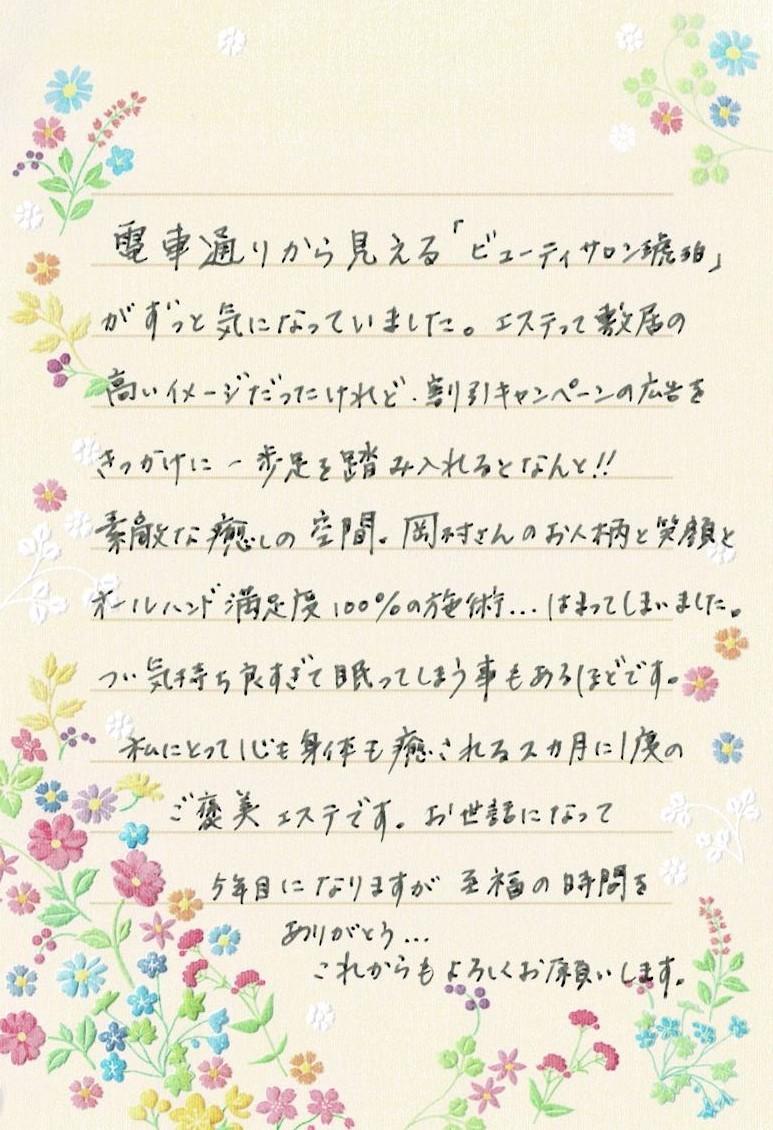 電車通りから見える「ビューティサロン琥珀」
がずっと気になっていました。エステって敷居の
高いイメージだったけれど、割引キャンペーンの広告を
きっかけに一歩足を踏み入れるとなんと!!
素敵な癒しの空間。岡村さんのお人柄と笑顔と
オールハンド満足度100%の施術…はまってしまいました。
つい気持ち良すぎて眠ってしまう事もあるほどです。
私にとって心も身体も癒される2カ月に1度の
ご褒美エステです。お世話になって
5年目になりますが至福の時間を
ありがとう…
これからもよろしくお願いします。